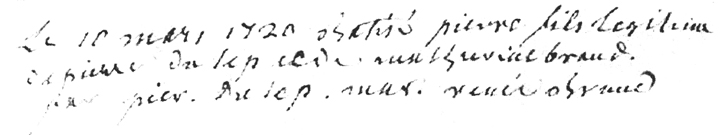 Le 10 mars 1720 batisé pierre fils legitime
de pierre du lep et de mathurine braud.
par pier. du lep. mar. renée braud